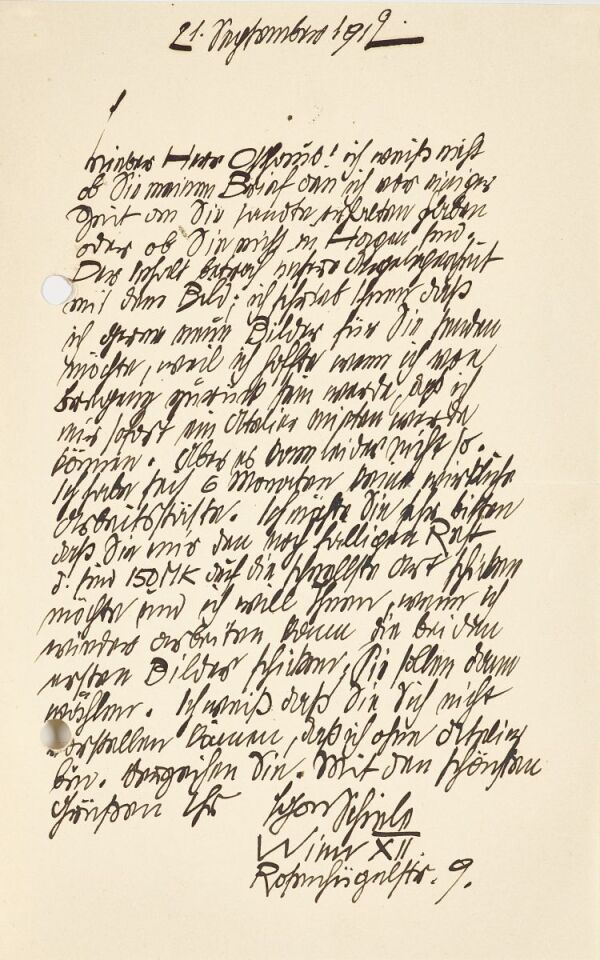 21. September 1912.
Lieber Herr Osthaus! ich weiß nicht
ob Sie meinen Brief den ich vor einiger
Zeit an Sie sandte, erhalten haben
oder ob Sie nicht in Hagen sind.
Der Inhalt betraf unsere Angelegenheit
mit dem Bild; ich schrieb Ihnen daß
ich gerne neue Bilder für Sie senden
möchte, weil ich hoffte wenn ich von
Bregenz zurück sein werde, daß ich
mir sofort ein Atelier mieten werde
können. Aber es kam leider nicht so.
Ich habe seit 6 Monaten keine wirkliche
Arbeitsstätte. Ich möchte Sie sehr bitten
daß Sie mir den noch fälligen Rest
d. sind 150 MK auf die schnellste Art schicken
möchte und ich will Ihnen, wenn ich
wieder arbeiten kann die beiden
ersten Bilder schicken, Sie sollen dann
wählen. Ich weiß daß Sie Sich nicht
vorstellen können, daß ich ohne Atelier
bin. Verzeihen Sie. Mit den schönsten
Grüßen Ihr Egon Schiele
Wien XII.
Rosenhügelstr. 9.